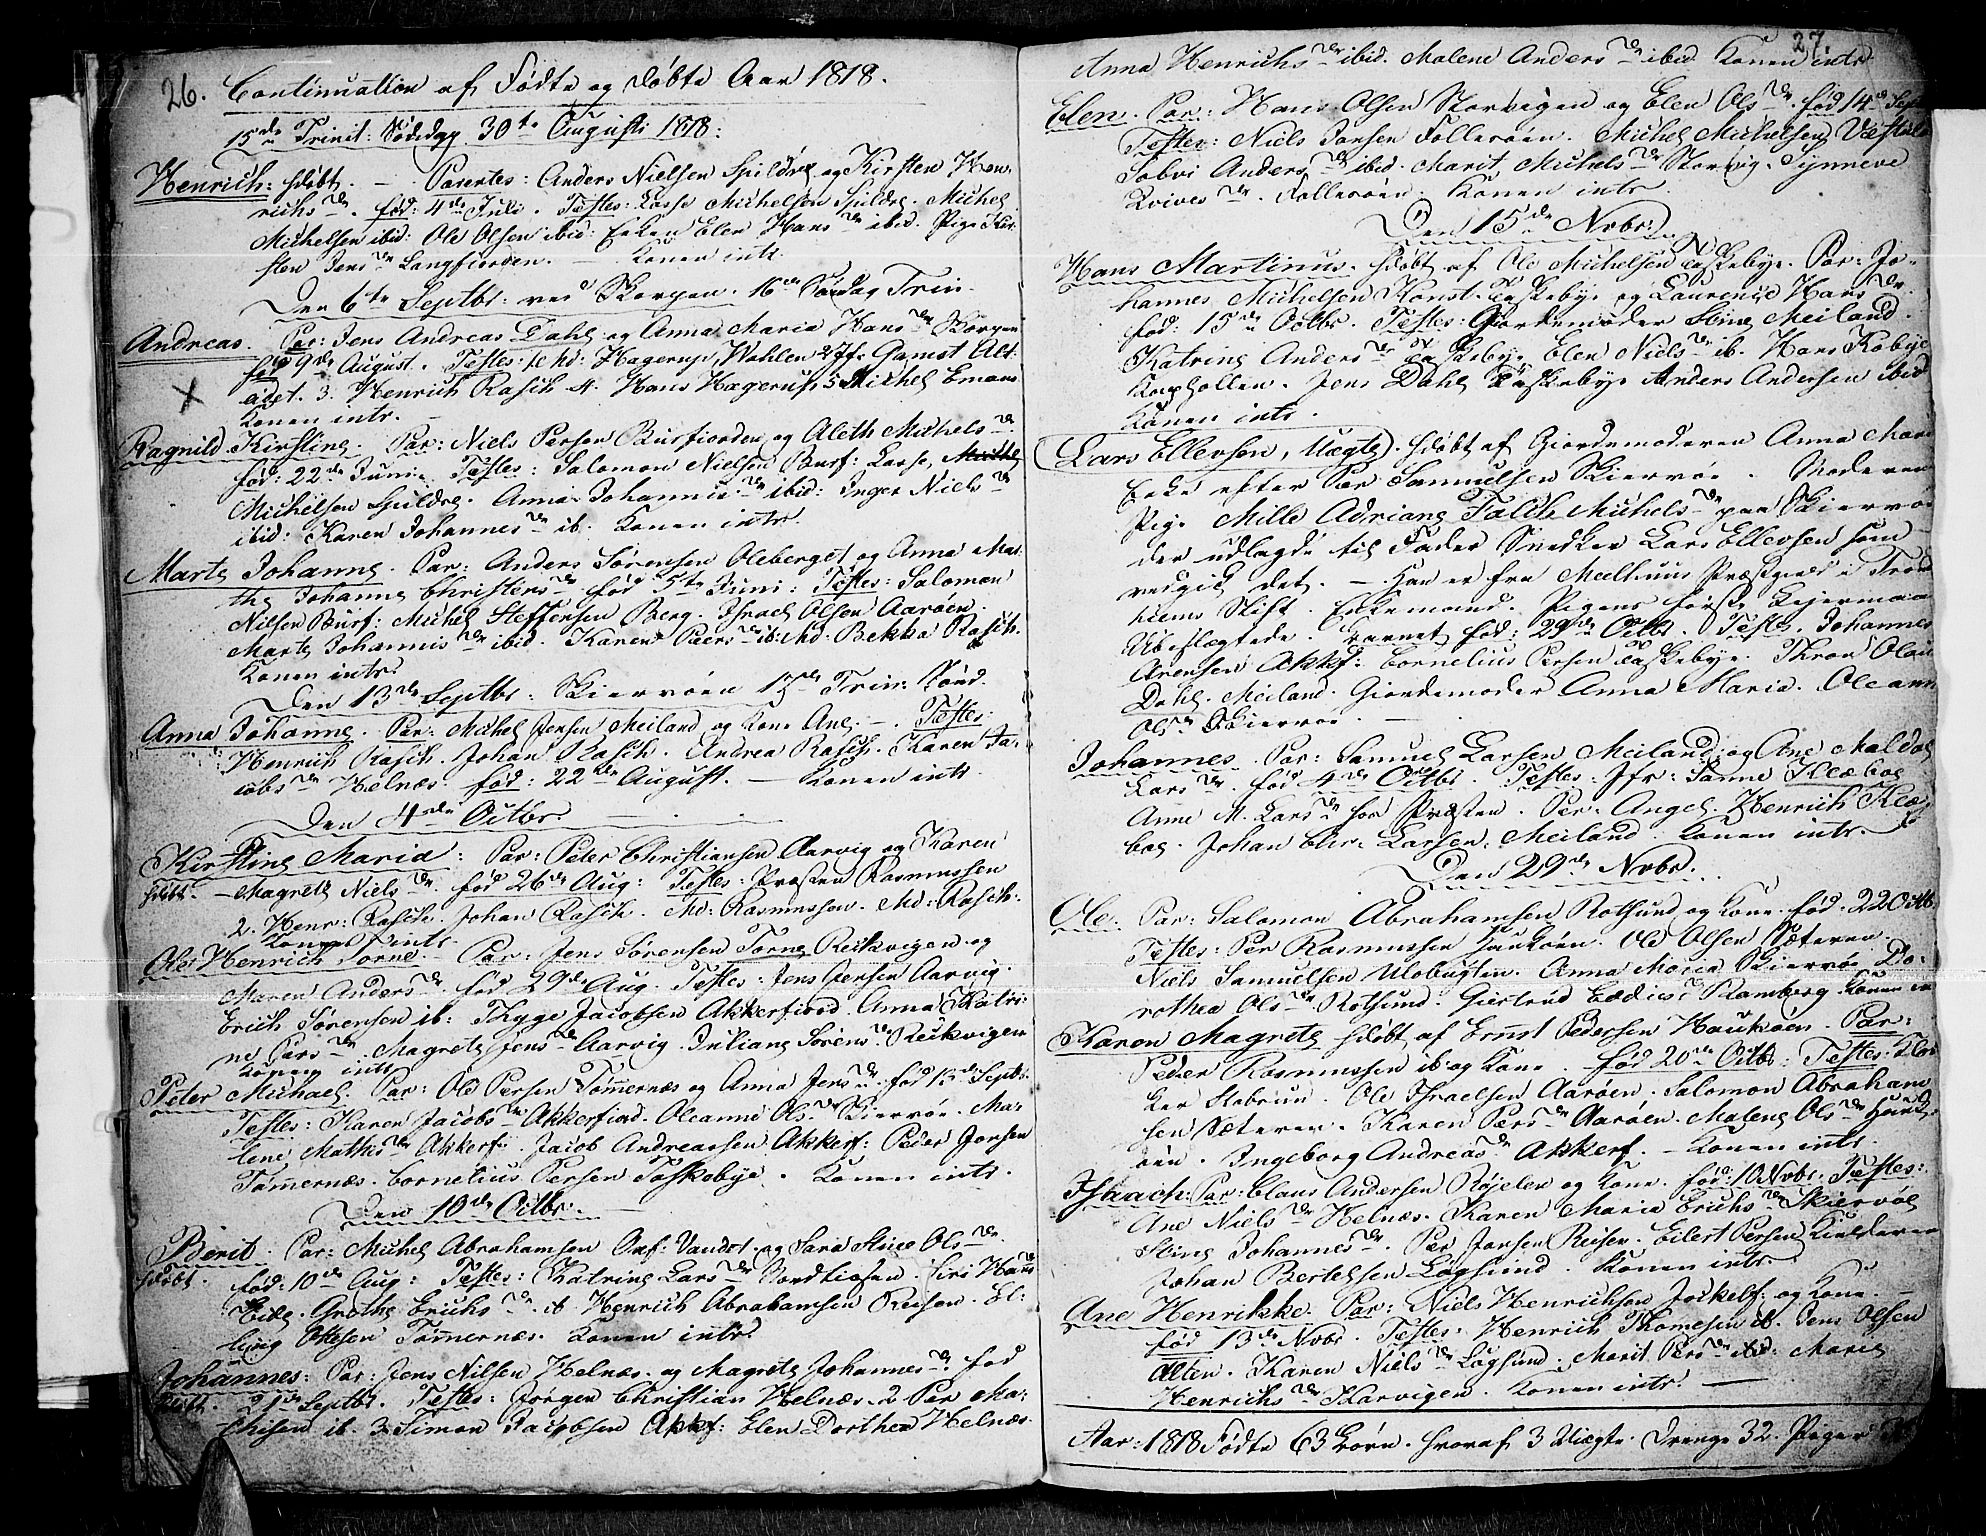 26. Continuation af Fødte og døbte Aar 1818.
15de Trinit: Søndag 30te Augusti 1818:
Henrich: hdøbt. — Parentes: Anders Nielsen Spildre og Kirsten Hen-
richsdr. fød: 4de Juli. Testes: Lasse Michelsen Spildre. Michel
Michelsen ibid: Ole Olsen ibid: Enken Elen Hansdr ibid. Pige Kir-
sten Jensdr Langfiorden. — Konen intr.
Den 6te Septbr: ved Skorpen. 16de Søndag Trin.
Andreas. Par: Jens Andreas Dahl og Anna Maria Hansdr Skorpen
fød 9de August. Testes: 1 Hagerup, Wahlen 2 Jfr. Gamst Alt-
adet. 3. Henrich Rasch 4. Hans Hagerup 5 Michel
Konen intr. —
Ragnild Kirstine. Par: Niels Persen Burfiorden og Aleth Michelsdr
fød: 22de Juni. Testes: Salomon Nielsen Burf: Lasse
Michelsen Spildre. Anna Johannisdr ibid: Inger Nielsdr
ibid: Karen Johannesdr ib. Konen intr.
Marte Johanne. Par: Anders Sørensen Oleberget og Anna Mar-
the Johanne Christensdr fød 5te Juni: Testes: Salomon
Nilsen Burf: Michel Steffensen Berg. Israel Olsen Aarøen.
Marte Johannisdr ibid. Karen Peersdr ib: Md. Bekka Rasch.
Konen intr.
Den 13de Septbr: Skiervøen 17de Trin: Sønd.
Anna Johanne. Par: Michel Jensen Meiland og Kone Ane. —. Testes:
Henrich Rasch. Johan Rasch. Andrea Rasch. Karen Ja-
cobsdr Helnæs. fød: 22de August. — Konen intr.
Den 4de Octbr.
Kirstine Maria: Par: Peter Christiansen Aarvig og Karen
hdøbt. — Magrete Nielsdr. fød 26de Aug: Testes: Præsten Rasmussen
2. Henr: Rasch. Johan Rasch. Md: Rasmussen. Md: Rasch.
Konen intr.
Ole Henrich Torne. — Par: Jens Sørensen Torne Reikvigen og
Maren Andersdr. fød 29de Aug. Testes: Jens Jensen Aarvig.
Erich Sørensen ib: Thyge Jacobsen Akkerfiord. Anna Katri-
ne Persdr. Magrete Jensdr Aarvig. Juliane Sørensdr Reikvigen
Konen intr.
Peter Michael. Par: Ole Persen Tømmernæs og Anna Jensdr. fød 12de Septbr:
Testes: Karen Jacobsdr Akkerfiord. Oleanne Olsdr Skiervøe. Ma-
lene Mathisdr Akkerf: Jacob Andreassen Akkerf: Peder Jonsen
Tømmernæs. Cornelius Persen Taskebye. Konen intr.
Den 10de Octbr:
Berit. Par: Michel Abrahamsen Oxf: Vandet. og Sara Stine Olsdr.
hdøbt. fød: 10de Aug: Testes: Katrine Larsdr Nordreisen. Siri
Grethe Erichsdr ib Henrich Abrahamsen Reisen. El-
ling Ottesen Tømmernæs. Konen intr.
Johannes: Par: Jens Nilsen Helnæs. og Magrete Johannesdr fød
hdøbt. 21de Septbr. Testes: Jørgen Christian Helnæs. 2 Per Ma-
thisen ib. 3 Simon Jacobsen Akkf: Elen Dorthea Helnæs.
27.
Anna Henrichsdr ibid. Malene Andersdr ibid Konen intr.
Elen. Par: Hans Olsen Storvigen og Elen Olsdr. fød 14de Sept
Testes: Niels Jonsen Follesøen. Michel Michelsen
Andersdr ibid. Marit Michelsdr Storvig. Synneve
Follesøen. Konen intr.
Den 15de Novbr:
Hans Martinus. hdøbt af Ole Michelsen Taskebye. Par: Jo-
hannes Michelsen Konst. Taskebye og Laurentse Hansdr.
fød: 15de Octbr. Testes: Giordemoder Stine Meiland.
Katrine Andersdr Taskebye Elen Nielsdr ib. Hans Kobye
Jens Dahl Taskebye Anders Andersen ibid
Konen intr.
Lars Ellevsen, Uægte. hdøbt af Giordemoderen Anna Mar
Enke efter Per Samuelsen Skiervøe. Moderen
Pige Mille Adriane Falch Michelsdr paa Skiervøe
der udlagde til Fader Snedker Lars Ellevsen som
vedgik det. — Han er fra Meelhuus Præstegield i Trond
hiems Stift. Enkemand. Pigens første Leiermaal
Ubeslægtede. Barnet fød: 29de Octbr. Testes. Johannes
Arensen Akkf: Cornelius Persen Taskebye. Thron Olai
Dahl. Meiland. Giordemoder Anna Maria. Oleanne
Olsdr Skiervøe. —
Johannes. Par: Samuel Larsen Meiland, og Ane Maldal
Larsdr. fød 4de Octbr. Testes: Jfr: Janne Klæboe
Anne M. Larsdr hos Præsten. Per: Angel. Henrich Klæ-
boe. Johan Chr. Larsen. Meiland Konen intr.
Den 29de Novbr.
Ole. Par: Salomon Abrahamsen Rotsund og Kone. fød. 22 Octbr.
Testes: Per Rasmussen Haukøen. Ole Olsen Sæteren.
Niels Samuelsen Ulobugten. Anna Maria Skiervøe Do-
rothea Olsdr Rotsund. Giertrud Ramberg Konen in
Karen Magrete hdøbt af Ernst Pedersen Haukøen. Par:
Peder Rasmussen ib og Kone. fød 20de Octbr: Testes: Klok
ker Stabrun. Ole Israelsen Aarøen. Salomon Abraham
sen Sæteren. Karen Persdr Aarøen. Malene Olsdr Hauk-
øen. Ingeborg Andreasdr Akkerf. — Konen intr.
Isaach: Par: Claus Andersen Røjelen og Kone. fød: 10 Novbr. Testes:
Ane Nielsdr Helnæs. Karen Maria Erichsdr Skiervøe
Stine Johannesdr. Per Jonsen Reisen. Eilert Persen Kielderen
Johan Bertelsen Løgsund. Konen intr.
Ane Henrikke. Par: Niels Henrichsen Jøckelf: og Kone. —
fød 13de Novbr. Testes: Henrich Thomesen ib. Jens Olsen
Alten. Karen Nielsdr Løgsund. Marit Persdr ibid: Maren
Henrichsdr Karvigen. Konen intr. —
Aar: 1818 Fødte 63 Børn. hvoraf 3 Uægte. Drenge 32. Piger